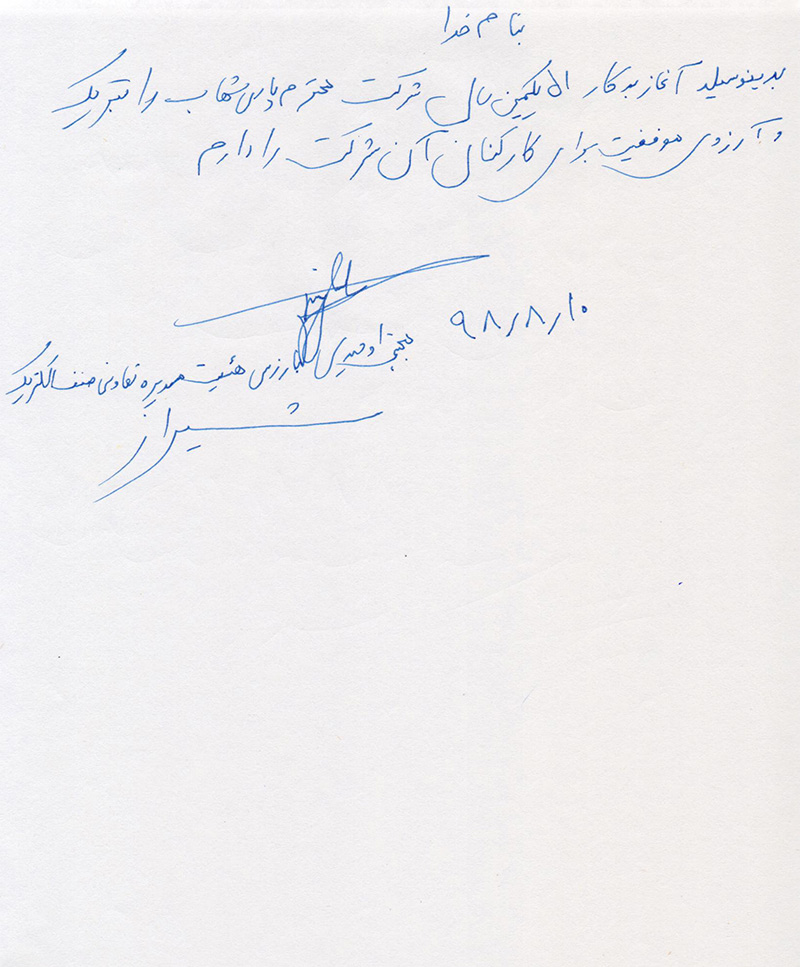 بنام خدا
بدینوسیله آغاز بدکار ۵۱ یکمین سال شرکت محترم پارس شهاب را تبریک
و آرزوی موفقیت برای کارکنان آن شرکت را دارم
۹۸٫۸٫۱۰
مجتبی اوحدی بازرس هئیت مدیره تعاونی صنف الکتریک
شیراز